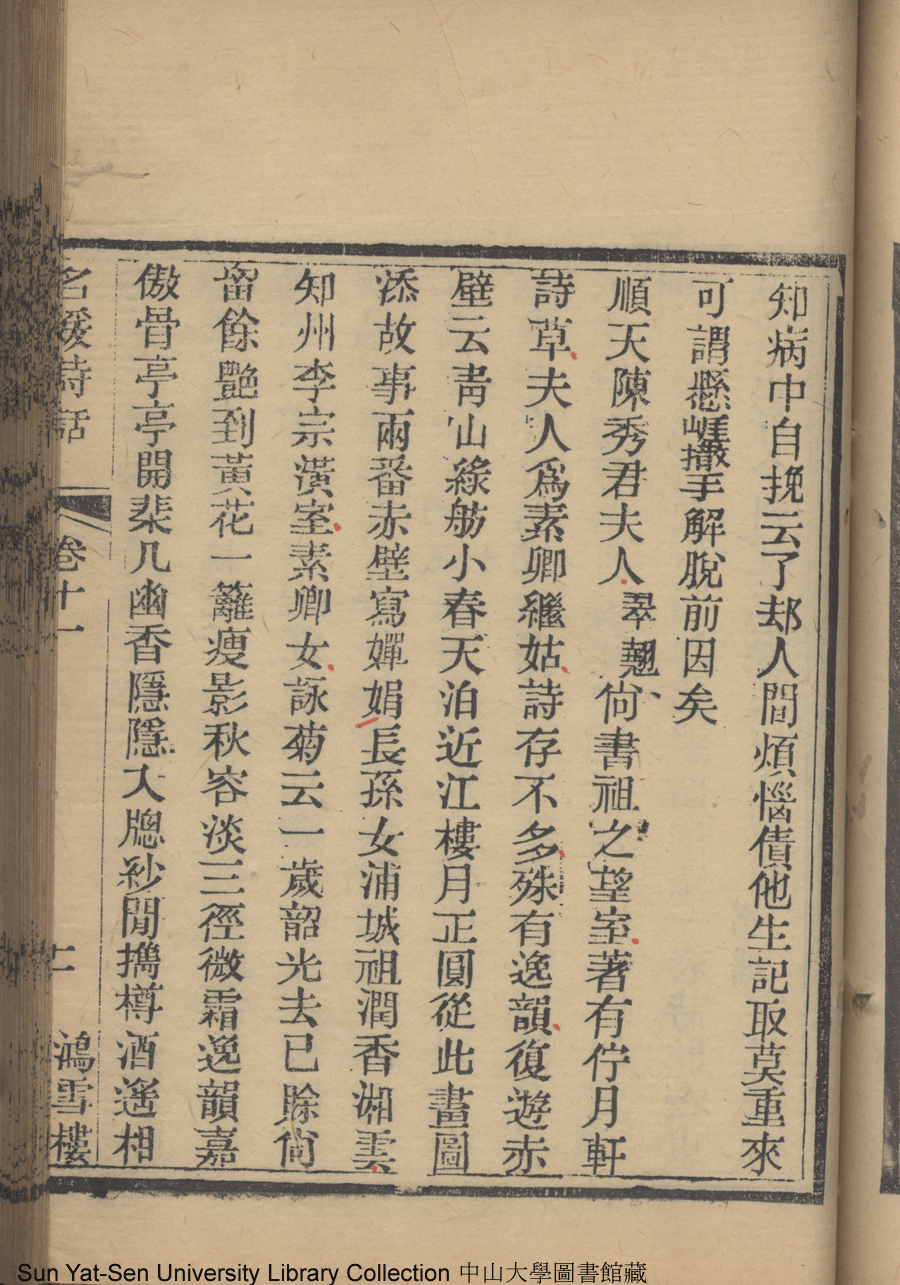 知病中自挽云了却人間煩惱債他生記取莫重來
可謂懸崖撒手解脫前因矣
順天陳秀君夫人翠翹尙書祖之望室著有佇月軒
詩草夫人爲素卿繼姑詩存不多殊有逸韻復遊赤
壁云靑山綠舫小春天泊近江樓月正圓從此畫圖
添故事兩番赤壁寫嬋娟長孫女浦城祖潤香湘雲
知州李宗潢室素卿女詠菊云一歲韶光去已賒尙
留餘艷到黃花一籬瘦影秋容淡三徑微霜逸韻嘉
傲骨亭亭開棐几幽香隱隱入牕紗閒携樽酒遙相
名媛詩話
卷十一
十一
鴻雪樓
Sun Yat-Sen University Library Collection 中山大學圖書館藏